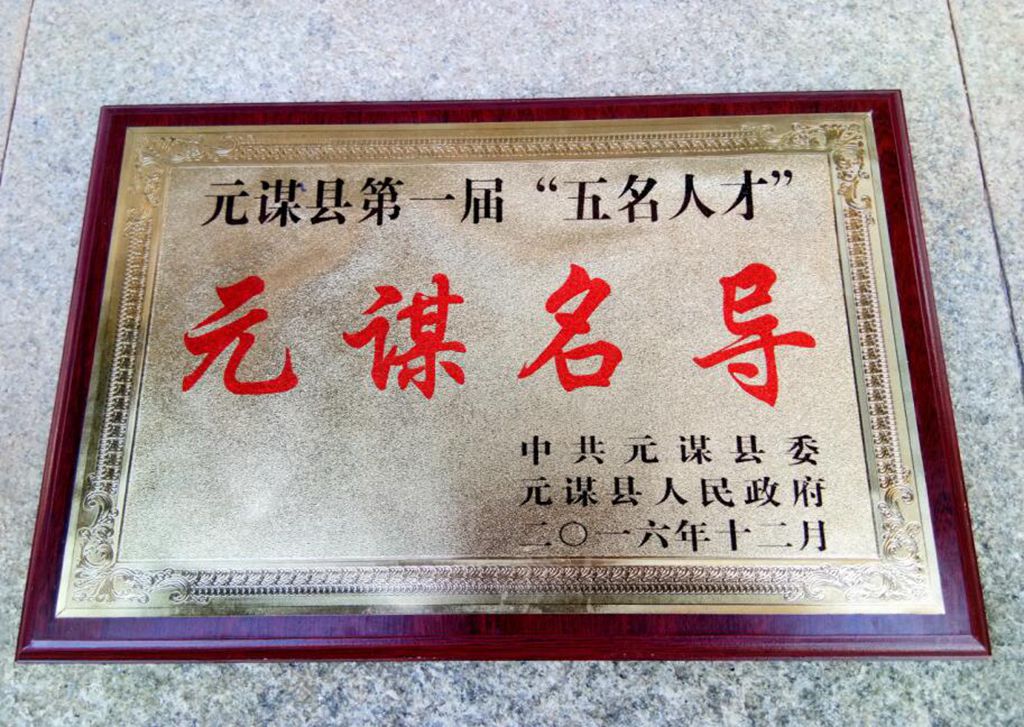 元谋县第一届“五名人才”
元谋名导
中共元谋县委
元谋县人民政府
二〇一六年十二月